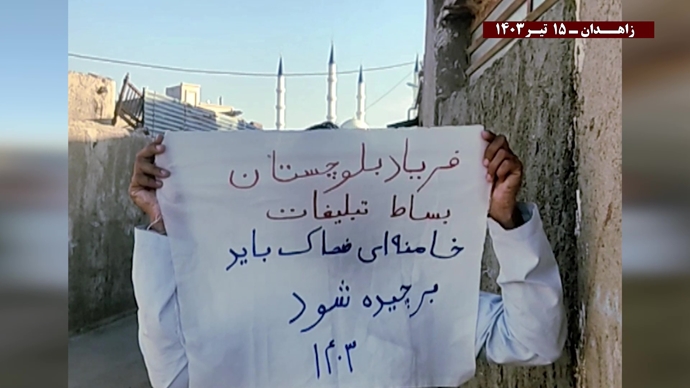 زاهـدان ـ ۱۵ تیـر ۱۴۰۳
فریاد بلوچستان
بساط تبلیغات
خامنه‌ای ضحاک باید
برچیده شود
۱۴۰۳